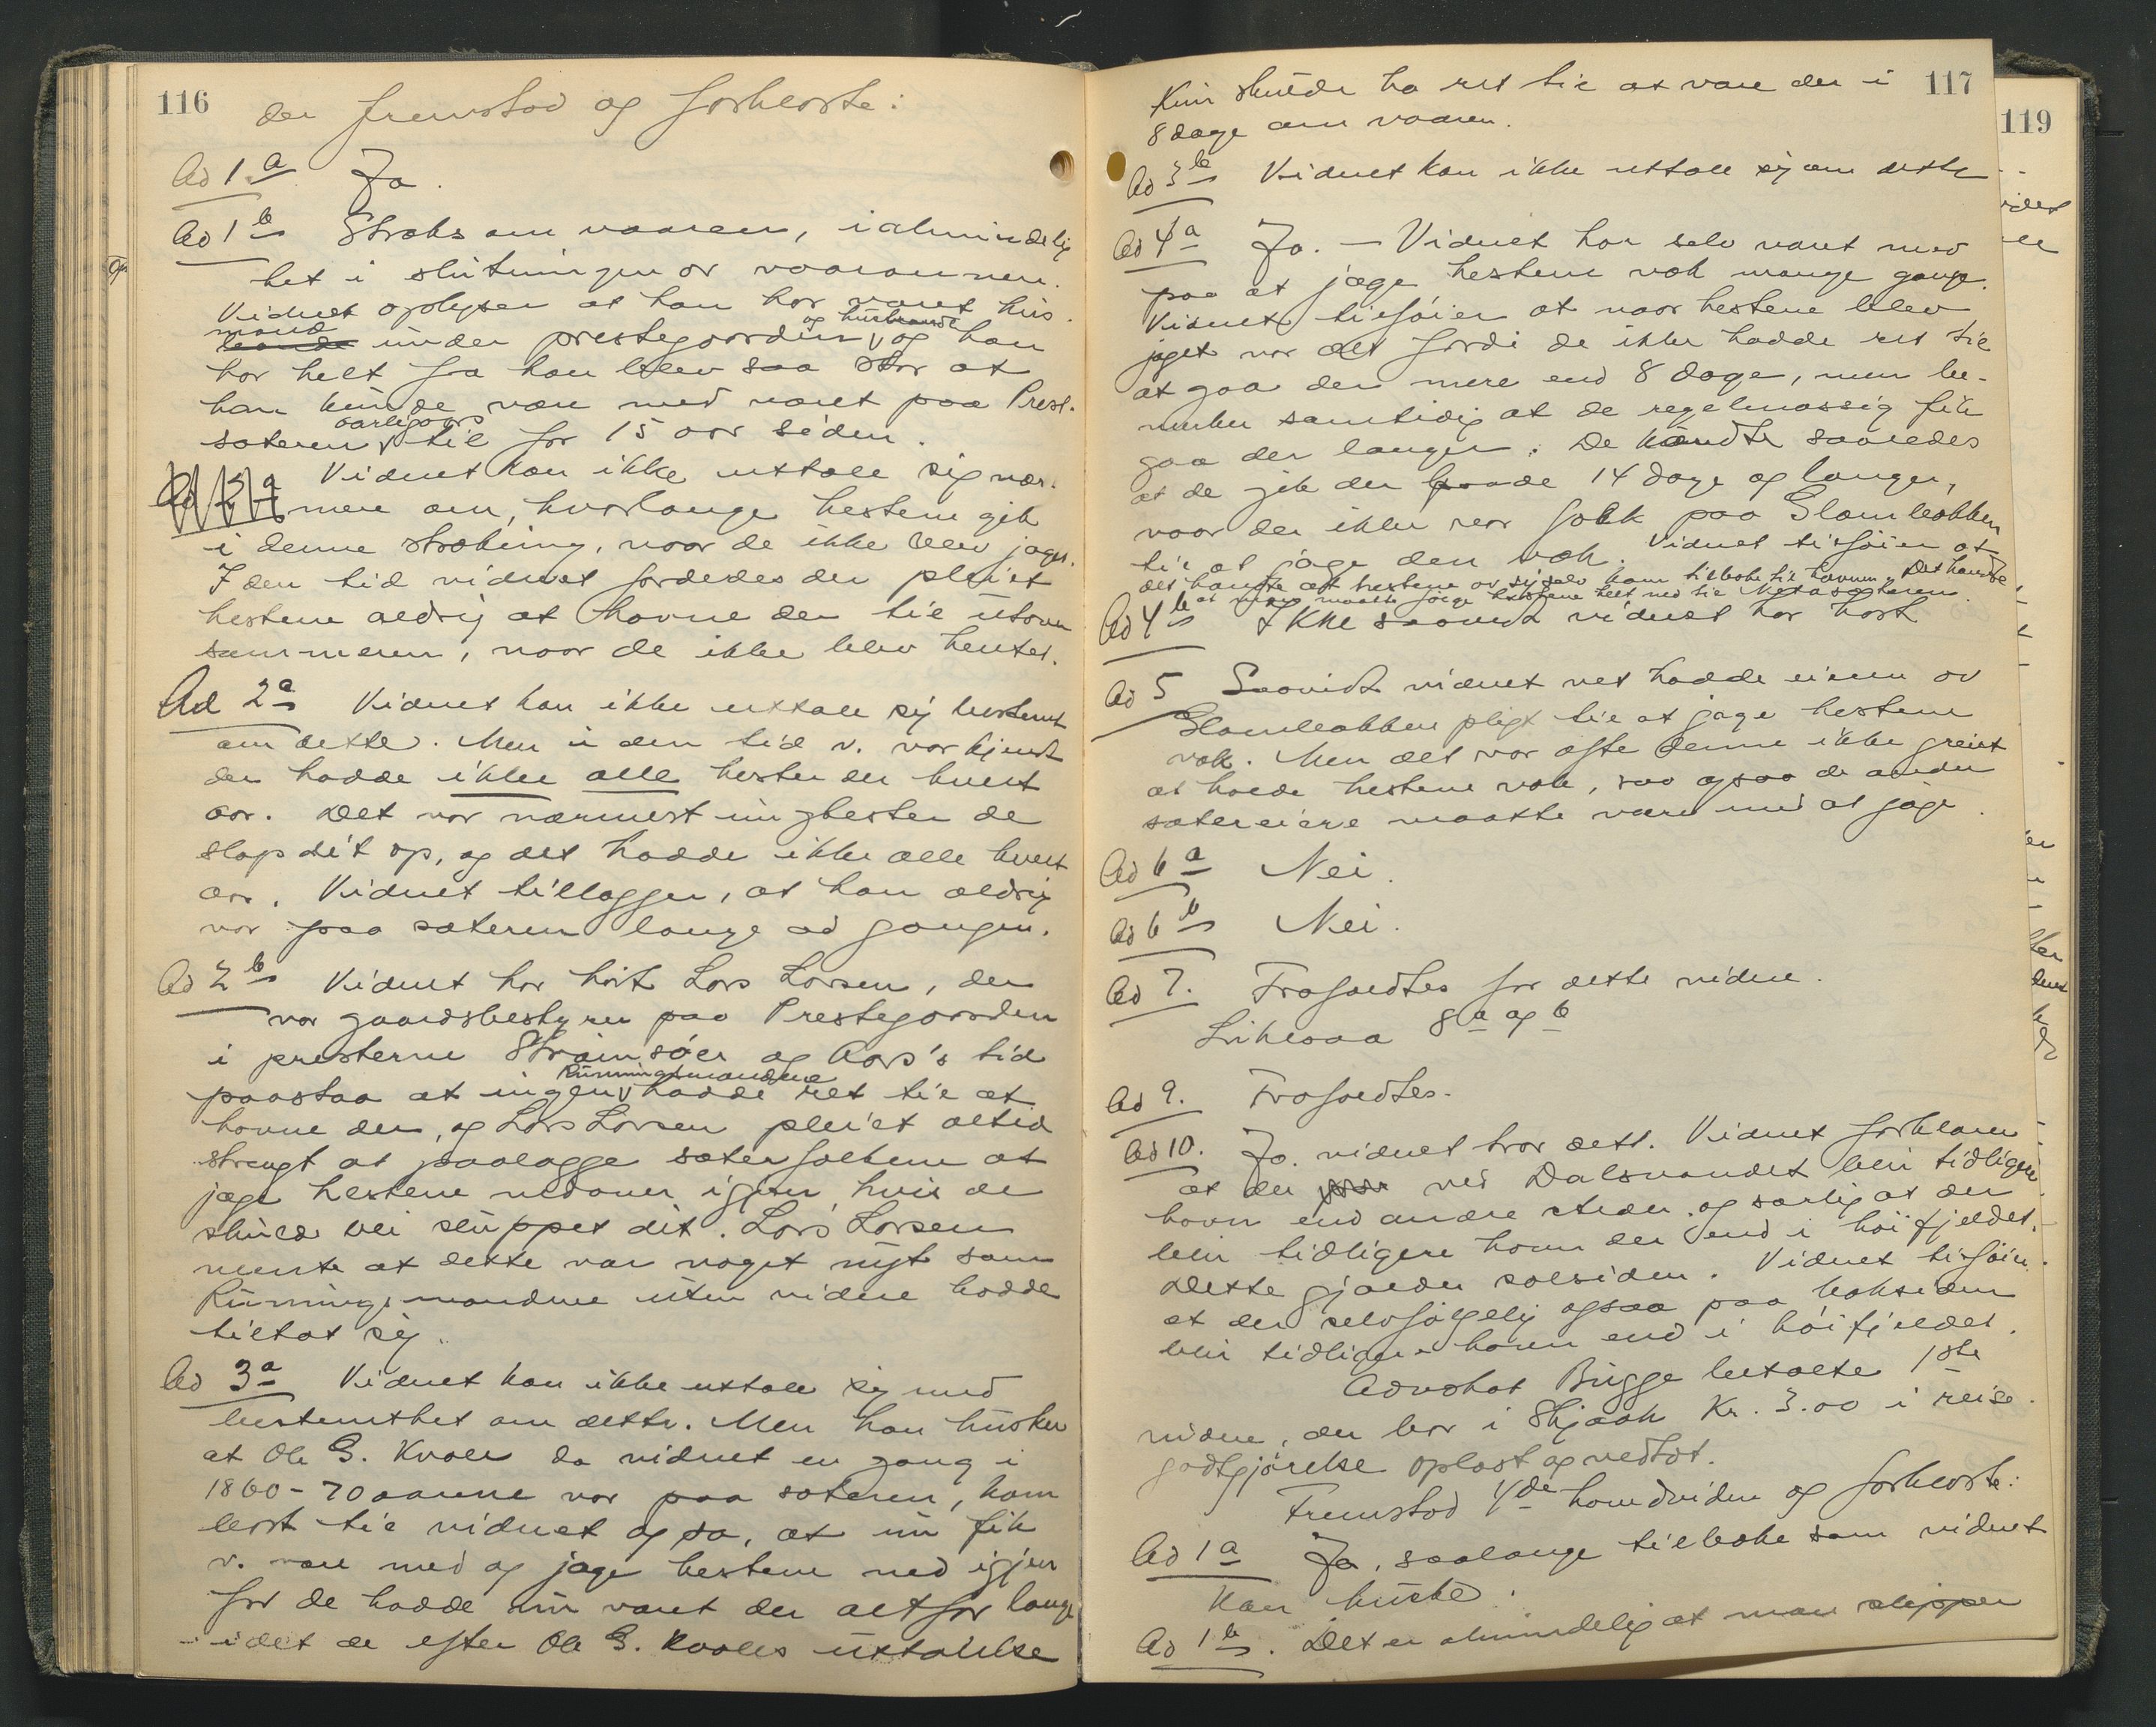 116
der fremstod og forklarte:
Ad 1a Ja.
Ad 1b Straks om vaaren, i almindelig
het i slutningen av vaaraannen.
Vidnet oplyser at han har været hus-
mand
under prestegaarden og husbonde og han
har helt fra han blev saa stor at
han kunde være med været paa Prest-
sæteren aarligaars til for 15 aar siden.
Vidnet kan ikke uttale sig nær-
mere om, hvorlænge hestene gik
i denne strækning, naar de ikke blev jaget.
I den tid vidnet færdedes der pleiet
hestene aldrig at havne der til utover
sommeren, naar de ikke blev hentet.
Ad 2a Vidnet kan ikke uttale sig bestemt
om dette. Men i den tid v. var kjendt
der hadde ikke alle hester der hvert
aar. Det var nærmest unghester de
slap dit op, og det hadde ikke alle hvert
aar. Vidnet tillægger, at han aldrig
var paa sæteren længe ad gangen.
Ad 2b Vidnet har hørt Lars Larsen, der
var gaardsbestyrer paa Prestegaarden
i presterne Strømsøes og Aars's tid
paastaa at ingen Rumningsmændene hadde ret til at
havne der, og Lars Larsen pleiet altid
strengt at paalægge sæterfolkene at
jage hestene nedover igjen hvis de
skulde bli sluppet dit. Lars Larsen
mente at dette var noget nyt som
Rumningsmændene uten videre hadde
tiltat sig.
Ad 3a Vidnet kan ikke uttale sig med
bestemthet om dette. Men han husker
at Ole G. Kvale da vidnet en gang i
1860-70 aarene var paa sæteren, kom
bort til vidnet og sa, at nu fik
v. være med og jage hestene ned igjen
for de hadde nu været der altfor længe
idet de efter Ole G. Kvales uttalelse
117
kun skulde ha ret til at være der i
8 dage om vaaren.
Ad 3b Vidnet kan ikke uttale sig om dette
Ad 4a Ja. - Vidnet har selv været med
paa at jage hestene væk mange gange.
Vidnet tilføier at naar hestene blev
jaget var det fordi de ikke hadde ret til
at gaa der mere end 8 dage, men be-
merker samtidig at de regelmæssig fik
gaa der længer. De hændte saaledes
at de gik der baade 14 dage og længer,
naar der ikke var folk paa Glambækken
til at jage dem væk. Vidnet tilføier at
det hændte at hestene av sig selv kom tilbake til havnen. Det hændte
at man maatte jage hestene helt ned til Netosæteren.
Ad 4b Ikke saavidt vidnet har hørt
Ad 5 Saavidt vidnet vet hadde eieren av
Glambækken pligt til at jage hestene
væk. Men det var ofte denne ikke greiet
at holde hestene væk, saa ogsaa de andre
sætereiere maatte være med at jage.
Ad 6a Nei.
Ad 6b Nei.
Ad 7. Frafaldtes for dette vidne.
Likesaa 8a og b
Ad 9. Frafaldtes.
Ad 10. Ja. vidnet tror det. Vidnet forklarer
at der ved Dalsvandet blir tidligere
havn end andre steder og særlig at der
blir tidligere havn der end i høifjeldet.
Dette gjælder solsiden. Vidnet tilføier
at der selvfølgelig ogsaa paa baksiden
blir tidligere havn end i høifjeldet.
Advokat Bugge betalte 1ste
vidne, der bor i Skjaak Kr. 3.00 i reise-
godtgjørelse oplæst og vedtat.
Fremstod 4de hovedvidne og forklarte:
Ad 1a Ja, saalænge tilbake som vidnet
kan huske.
Ad 1b. Det er almindelig at man slipper
119